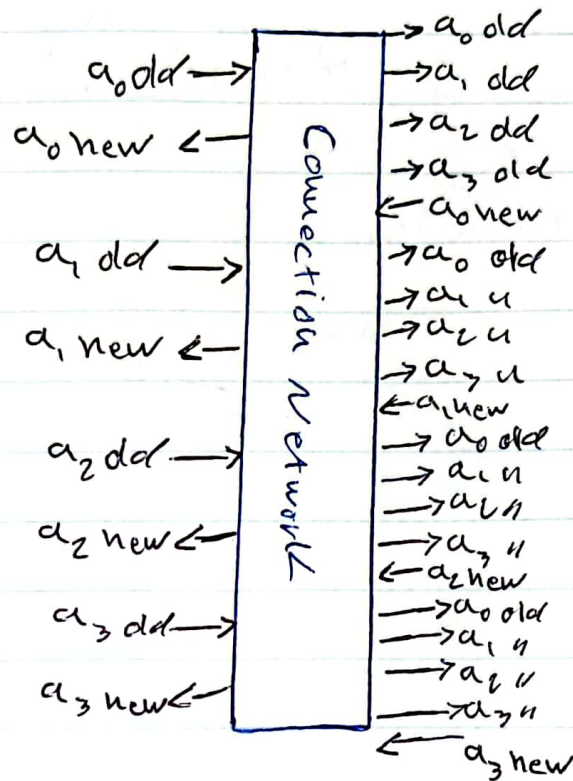 a₀ old
a₀ new
a₁ old
a₁ new
a₂ old
a₂ new
a₃ old
a₃ new
Connection Network
a₀ old
a₁ old
a₂ old
a₃ old
a₀ new
a₀ old
a₁ "
a₂ "
a₃ "
a₁ new
a₀ old
a₁ "
a₂ "
a₃ "
a₂ new
a₀ old
a₁ "
a₂ "
a₃ "
a₃ new